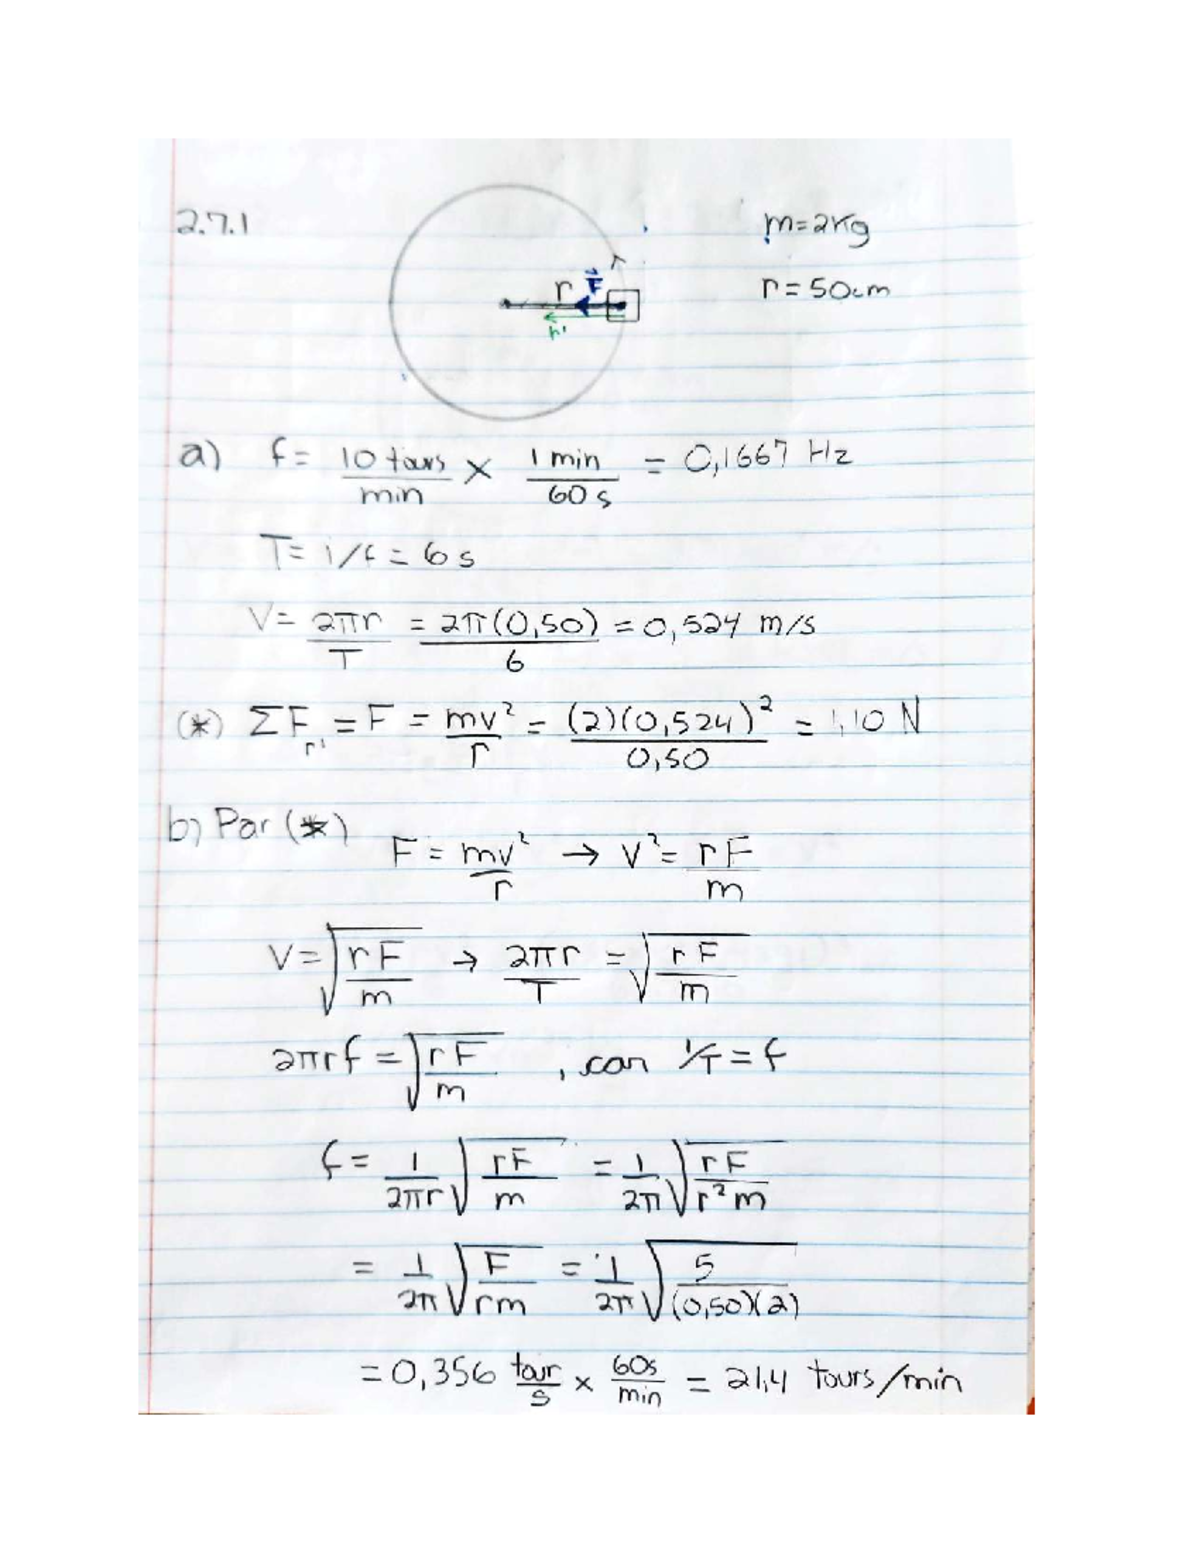 2.7.1
m=2kg
r F⃗
r=50cm
r'
a) f= 10 tours/min × 1 min/60 s = 0,1667 Hz
T= 1/f = 6 s
V= 2πr/T = 2π(0,50)/6 = 0,524 m/s
(*) ΣF_r' = F = mv²/r = (2)(0,524)²/0,50 = 1,10 N
b) Par (*)
F = mv²/r → V² = rF/m
V = √(rF/m) → 2πr/T = √(rF/m)
2πrf = √(rF/m) , car 1/T = f
f = 1/2πr √(rF/m) = 1/2π √(rF/r²m)
= 1/2π √(F/rm) = 1/2π √(5/(0,50)(2))
= 0,356 tour/s × 60s/min = 21,4 tours/min